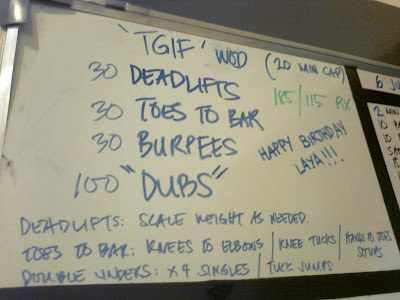 "TGIF" WOD (20 MIN CAP)
30 DEADLIFTS 185/115 RX
30 TOES TO BAR
30 BURPEES
100 "DUBS"
HAPPY BIRTHDAY
LAYA!!!
DEADLIFTS: SCALE WEIGHT AS NEEDED.
TOES TO BAR: KNEES TO ELBOWS / KNEE TUCKS / HANDS TO TOES SITUPS
DOUBLE UNDERS: X4 SINGLES / TUCK JUMPS
6 JU
2 MIN
10